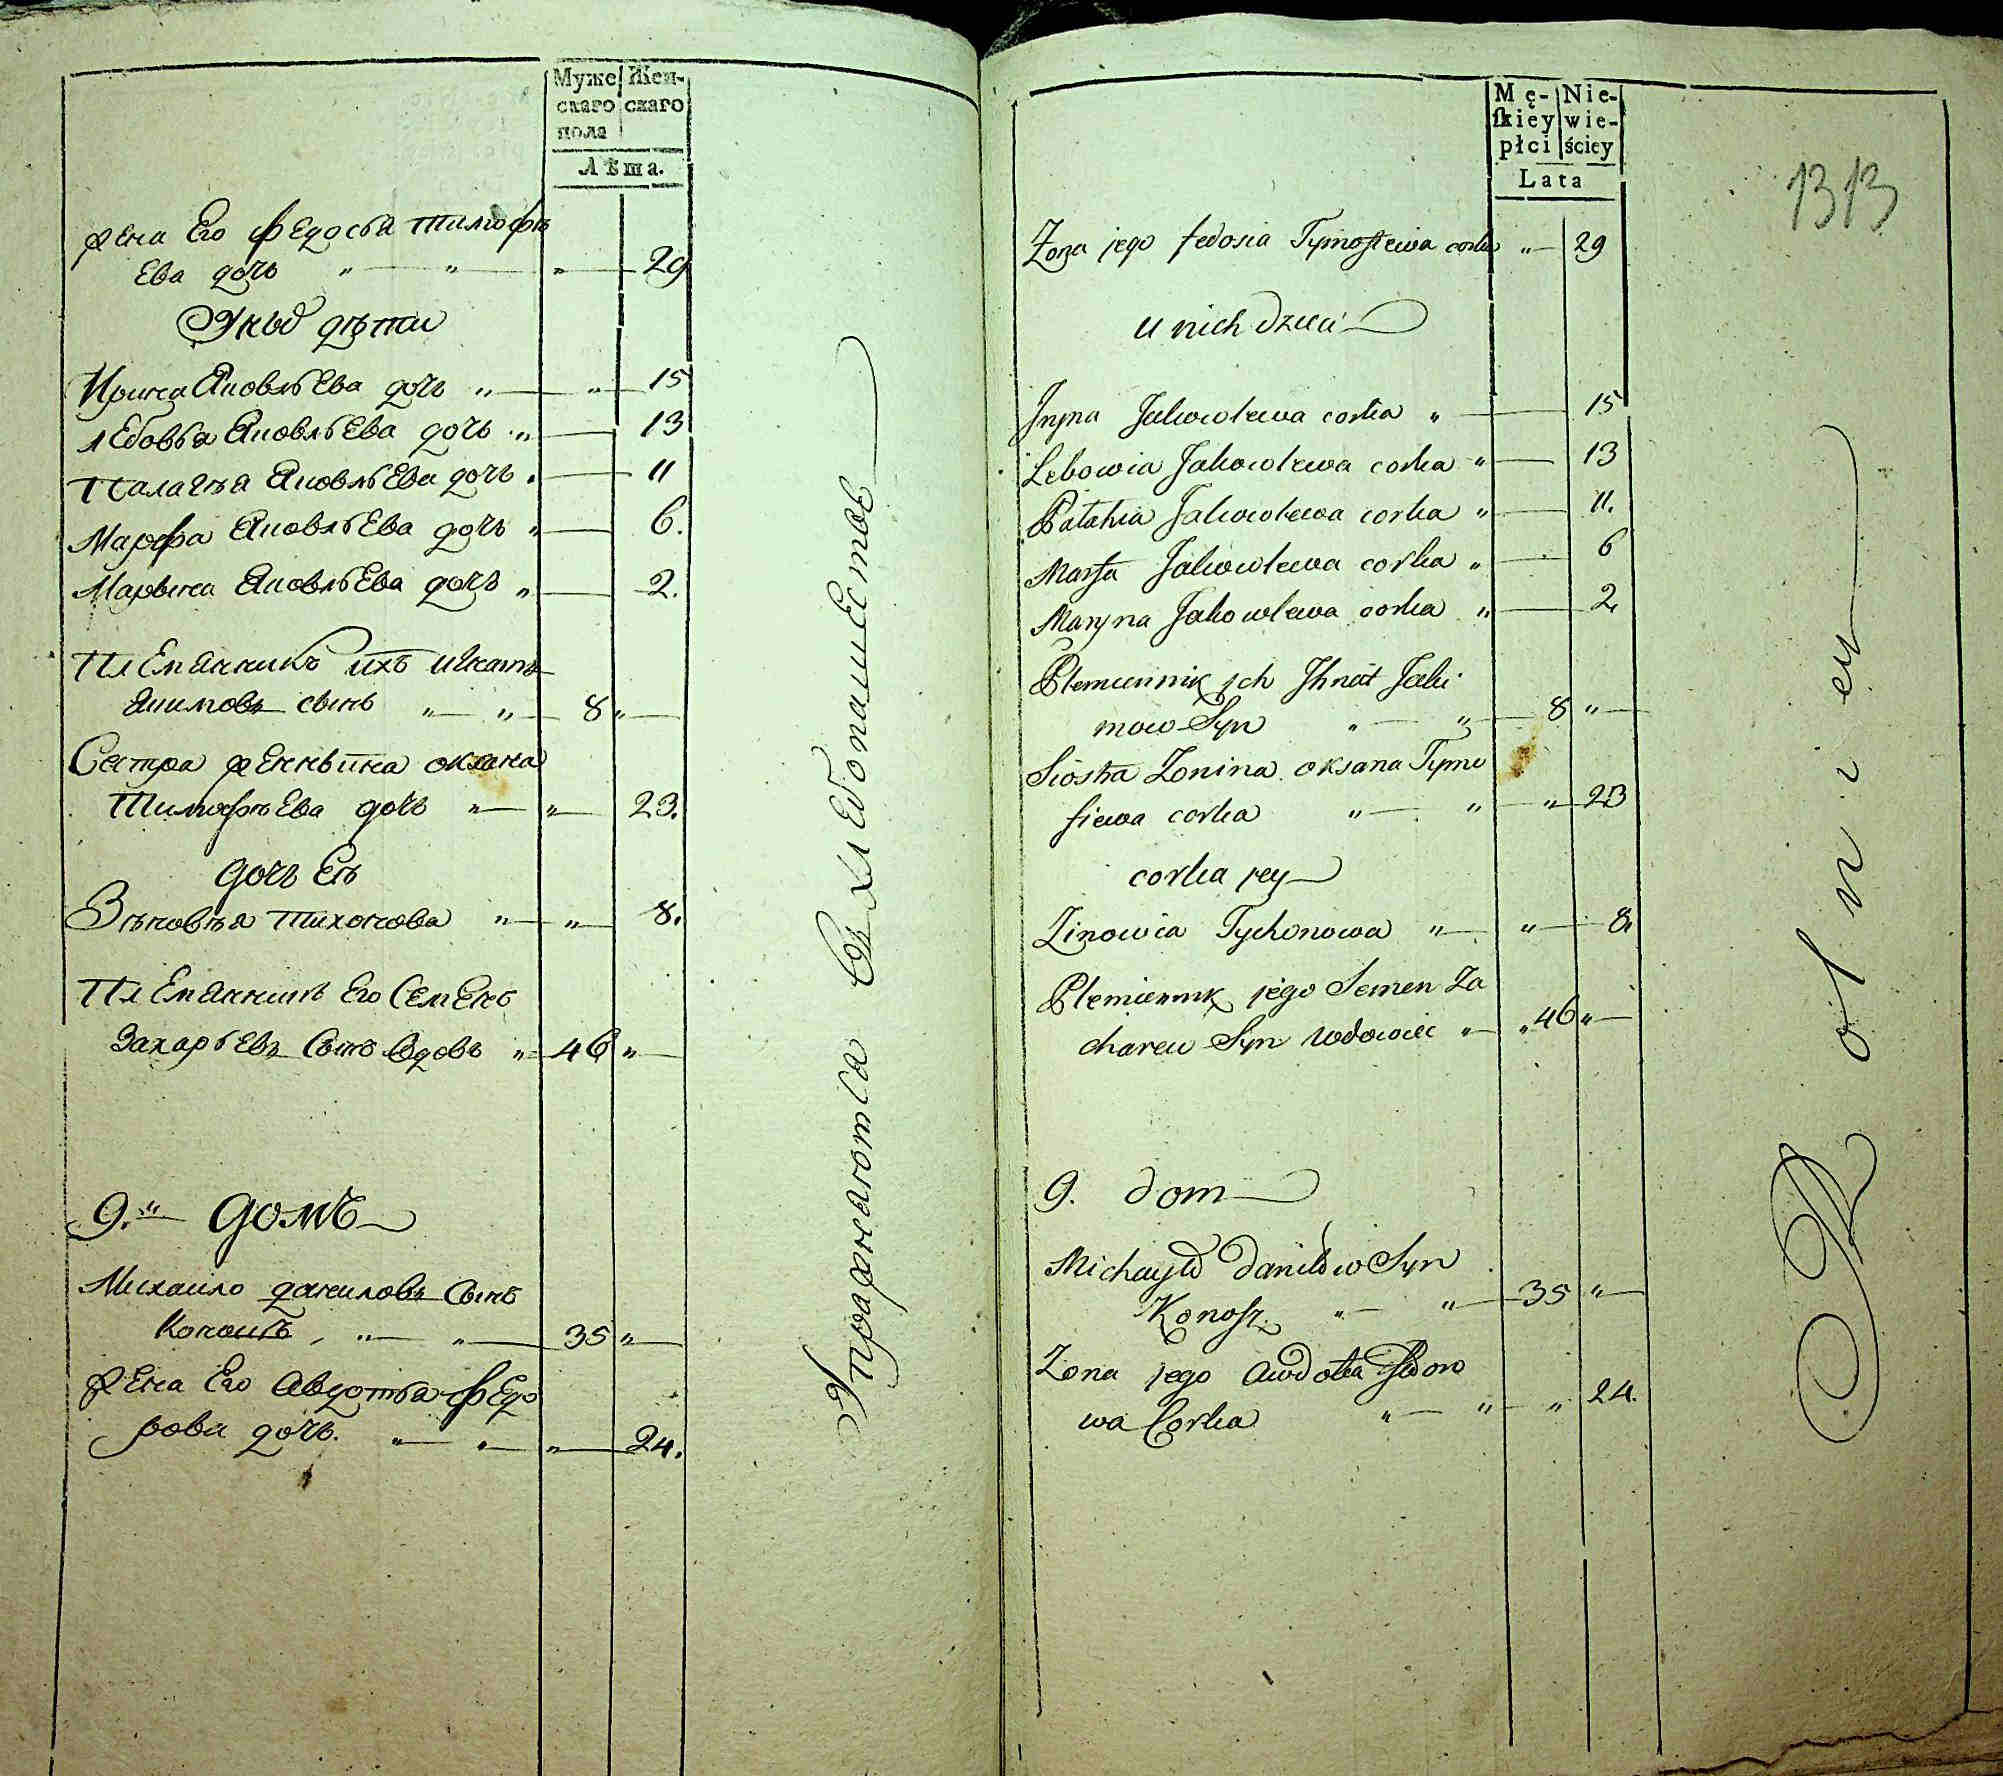 Муже Жен-
скаго скаго
пола
Лѣта.
жена Его федосья тимофѣ
Ева дочь " " " 29
Уныхъ дѣти
Ирина Яковлѣва дочь " " 15
лебовья Яковльева дочь " 13
Палагѣя Яковльева дочь " 11
Марфа Яковльева дочь " 6.
Марьина Яковльева дочь " 2.
Племянникъ ихъ игнатъ
якимовъ сынъ " " 8 "
Сестра женнына оксана
тимофѣева дочь " " 23.
дочь Еѣ
Зѣновѣя тихонова " " 8.
Племянникъ Его Семенъ
Захарьевъ сынъ вдовъ " 46 "
9.й домъ
Михаило даниловъ сынъ
Коношъ " " 35 "
жена Его Авдотья федо
рова дочь. " " " 24.
Упражняютса въ хлебопашестве
Mę- Nie-
ſkiey wie-
płci ściey
Lata
1313
Zona jego fedosia Tymofiewa corka " 29
u nich dzieci
Jryna Jakowlewa corka " 15
Lebowia Jakowlewa corka " 13
Pałahia Jakowlewa corka " 11.
Marfa Jakowlewa corka " 6
Maryna Jakowlewa corka " 2.
Plemiennik ich Jhnat Jaki
mow Syn " " 8 "
Siostra Zonina oksana Tymo
fiewa corka " " " 23
corka jey
Zinowia Tychonowa " " 8.
Plemiennik jego Semen Za
charew Syn wdowiec " " 46 "
9. dom
Michayło Daniłow Syn
Konosz " " 35 "
Zona jego Awdotia fedoro
wa Corka " " " 24.
Rolniey